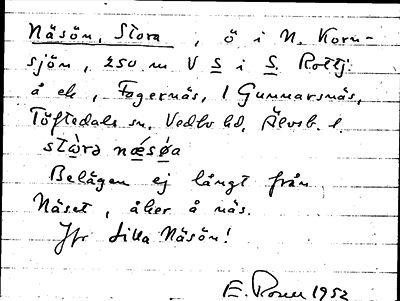 Näsön, Stora, ö i N. Korn-
sjön, 250 m V S i S. Rottj.
å ek, Fagernäs, 1 Gunnarsnäs,
Töftedals sn, Vedbo hd, Älvsb. l.
stɷ̀rə nǽsø̀a
Belägen ej långt från
Näset, åker å näs.
Jfr Lilla Näsön!
E. Rosen 1952